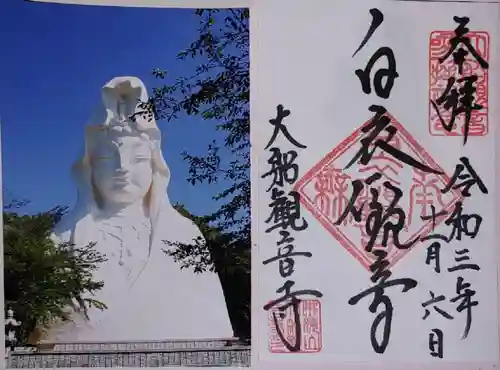 奉拝
令和三年
十一月六日
白衣観音
大船観音寺